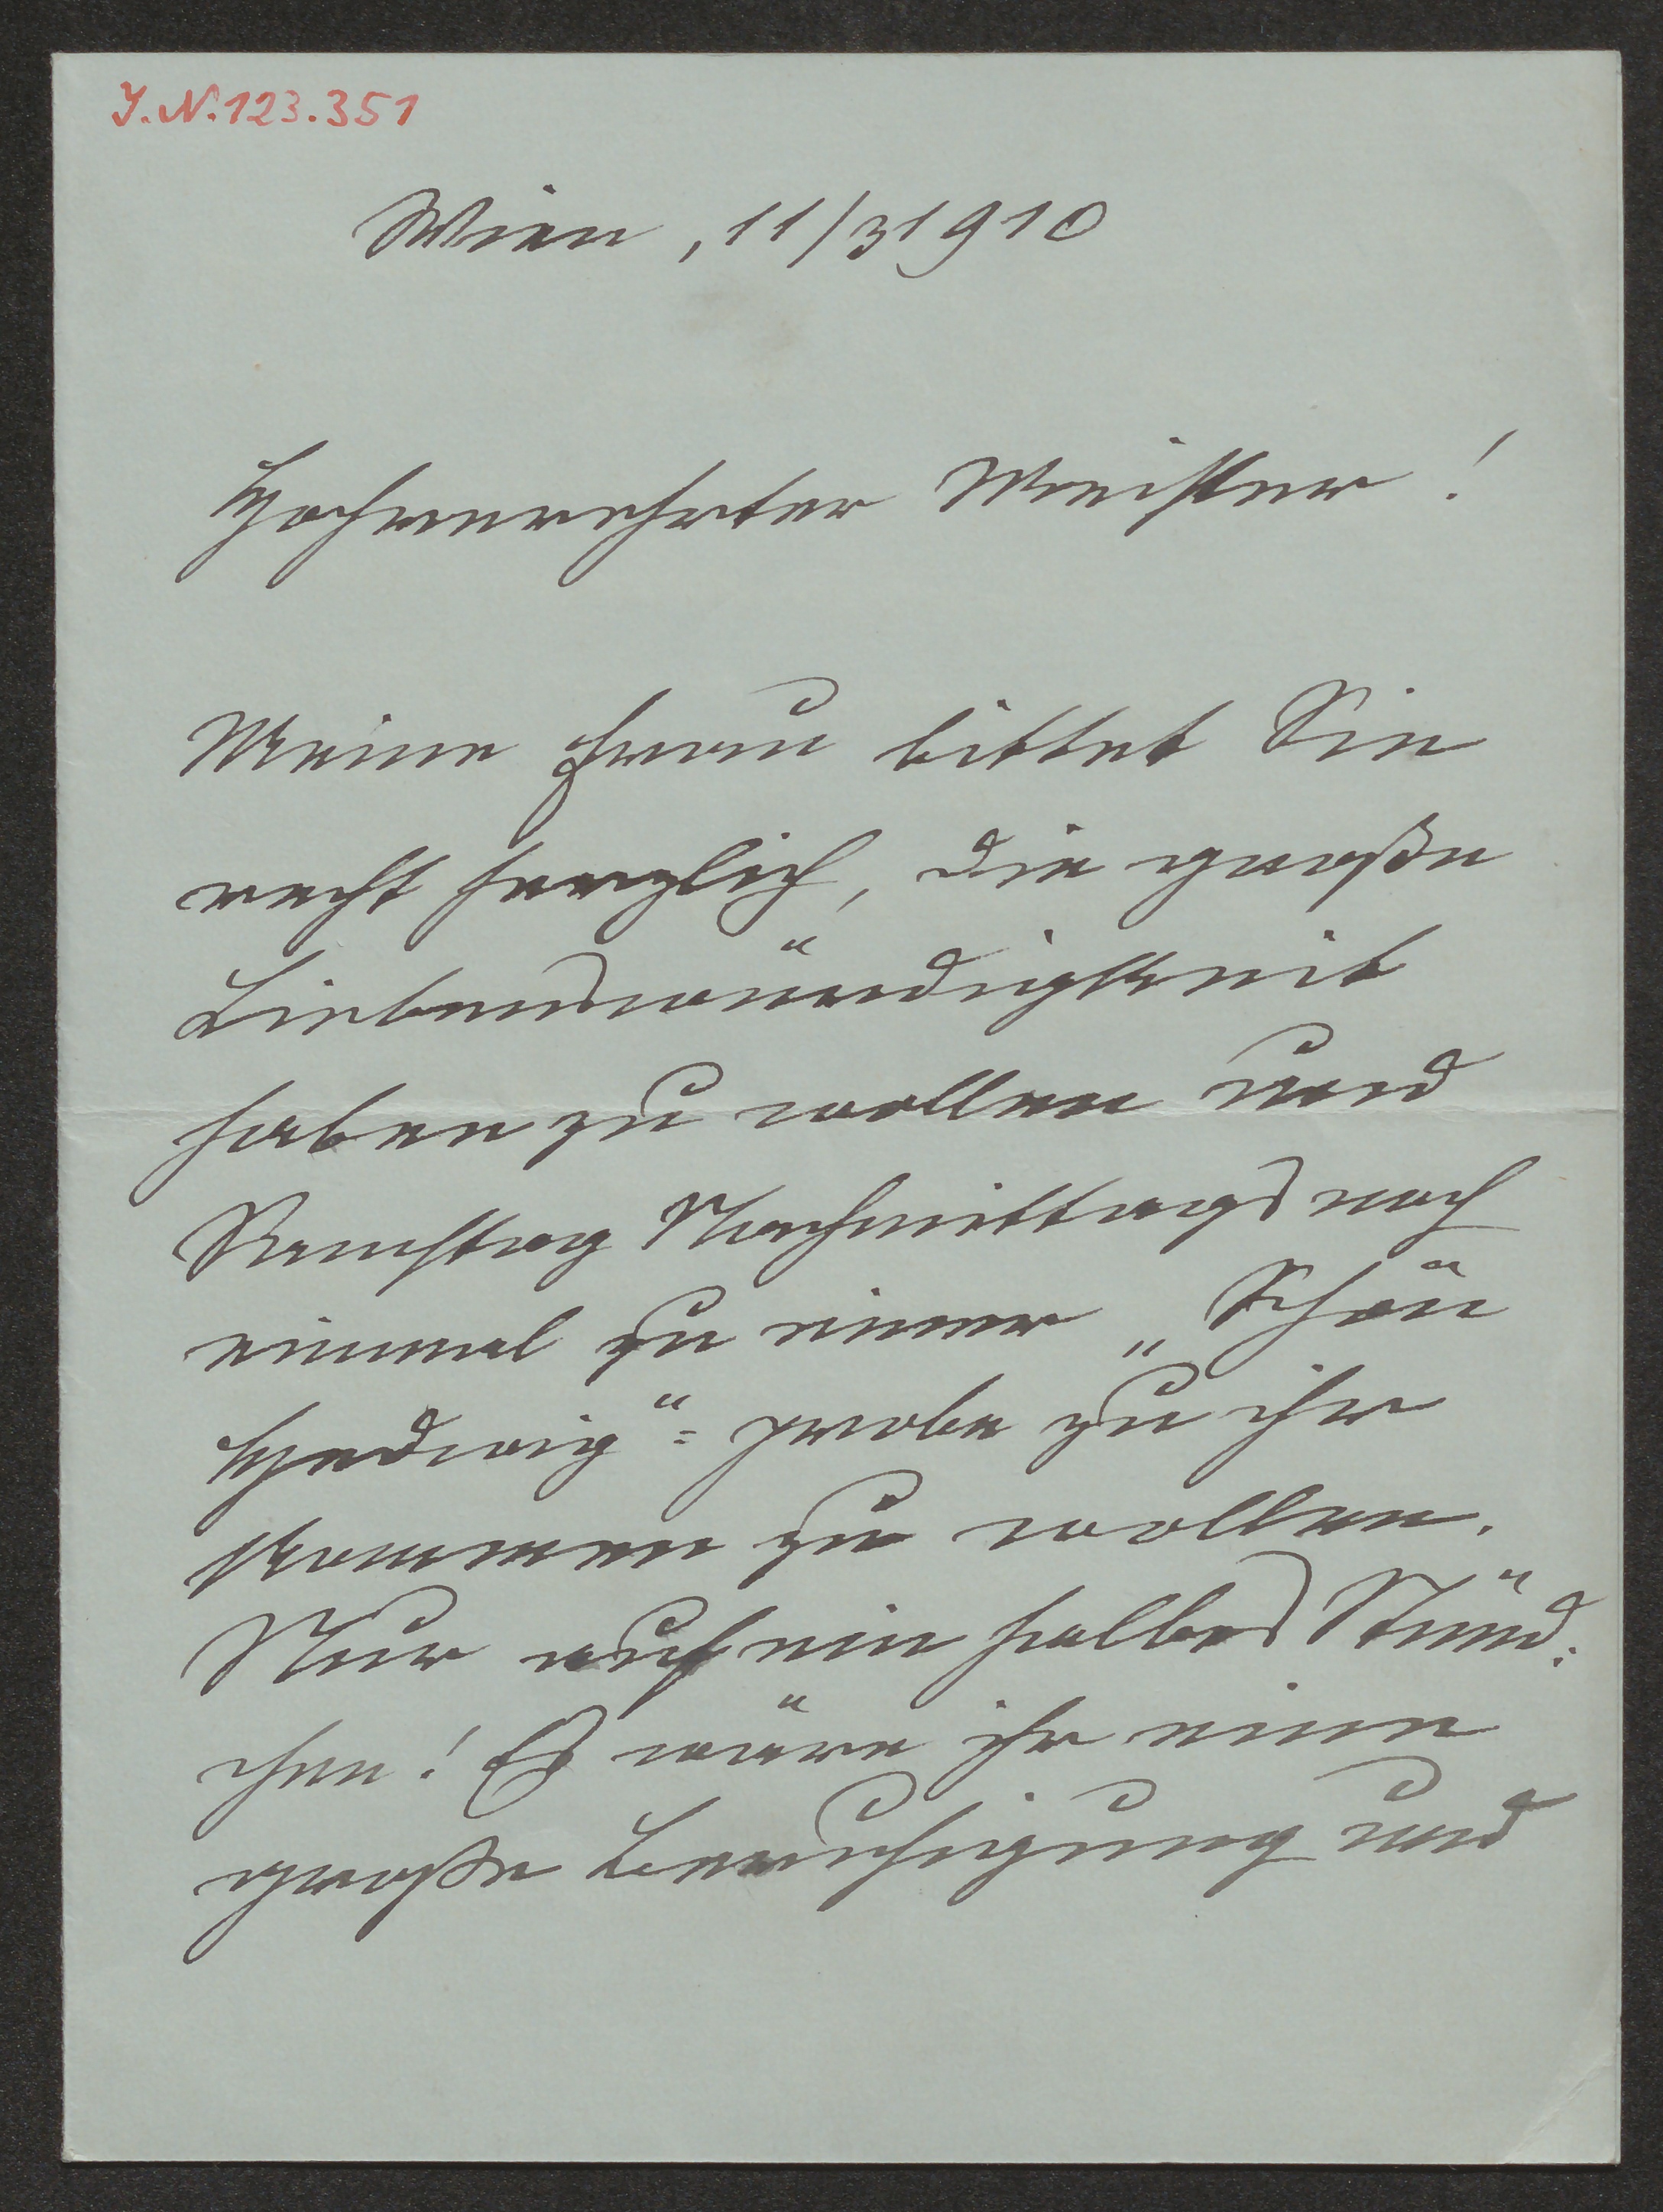 J. N. 123.351
Wien, 11/3 1910
Hochverehrter Meister!
Meine Frau bittet Sie
recht herzlich, die große
Liebenswürdigkeit
haben zu wollen und
Samstag Nachmittags noch
einmal zu einer „Schön
Hedwig"= probe zu ihr
kommen zu wollen.
Nur auf ein halbes Stünd=
chen! Es wäre ihr eine
große Beruhigung und